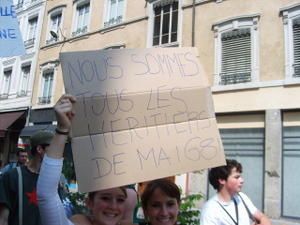 NOUS SOMMES
TOUS LES
HERITIERS
DE MAI 68!